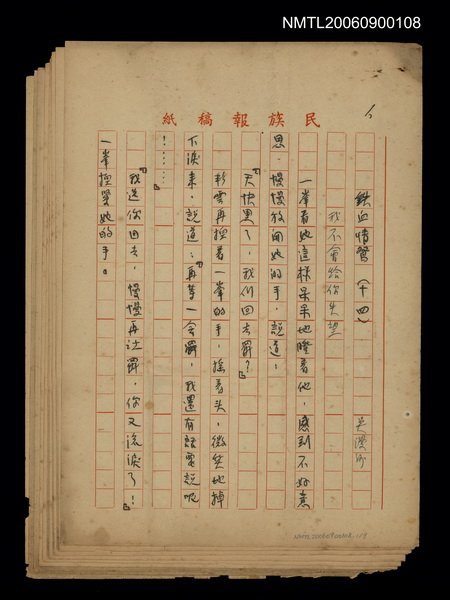 NMTL20060900108
民族報稿紙
鉄血情鴛（十四）
我不會給你失望
吳漫沙
一峯看她這樣呆呆地瞪着他，感到不好意
思，慢慢放開她的手，說道：
『天快黑了，我们回去罷？』
彩雲再握着一峯的手，搖着头，微笑地掉
下淚來，說道：『再等一会罷，我還有話要說呢
！……』
『我送你回去，慢慢再说罷，你又流淚了！』
一峯握緊她的手。